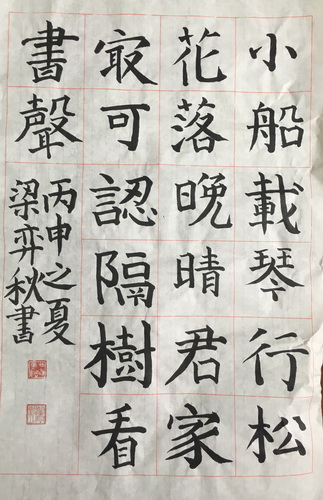 小船載琴行松
花落晚晴君家
㝡可認隔樹看
書聲
丙申之夏
梁弈秋書